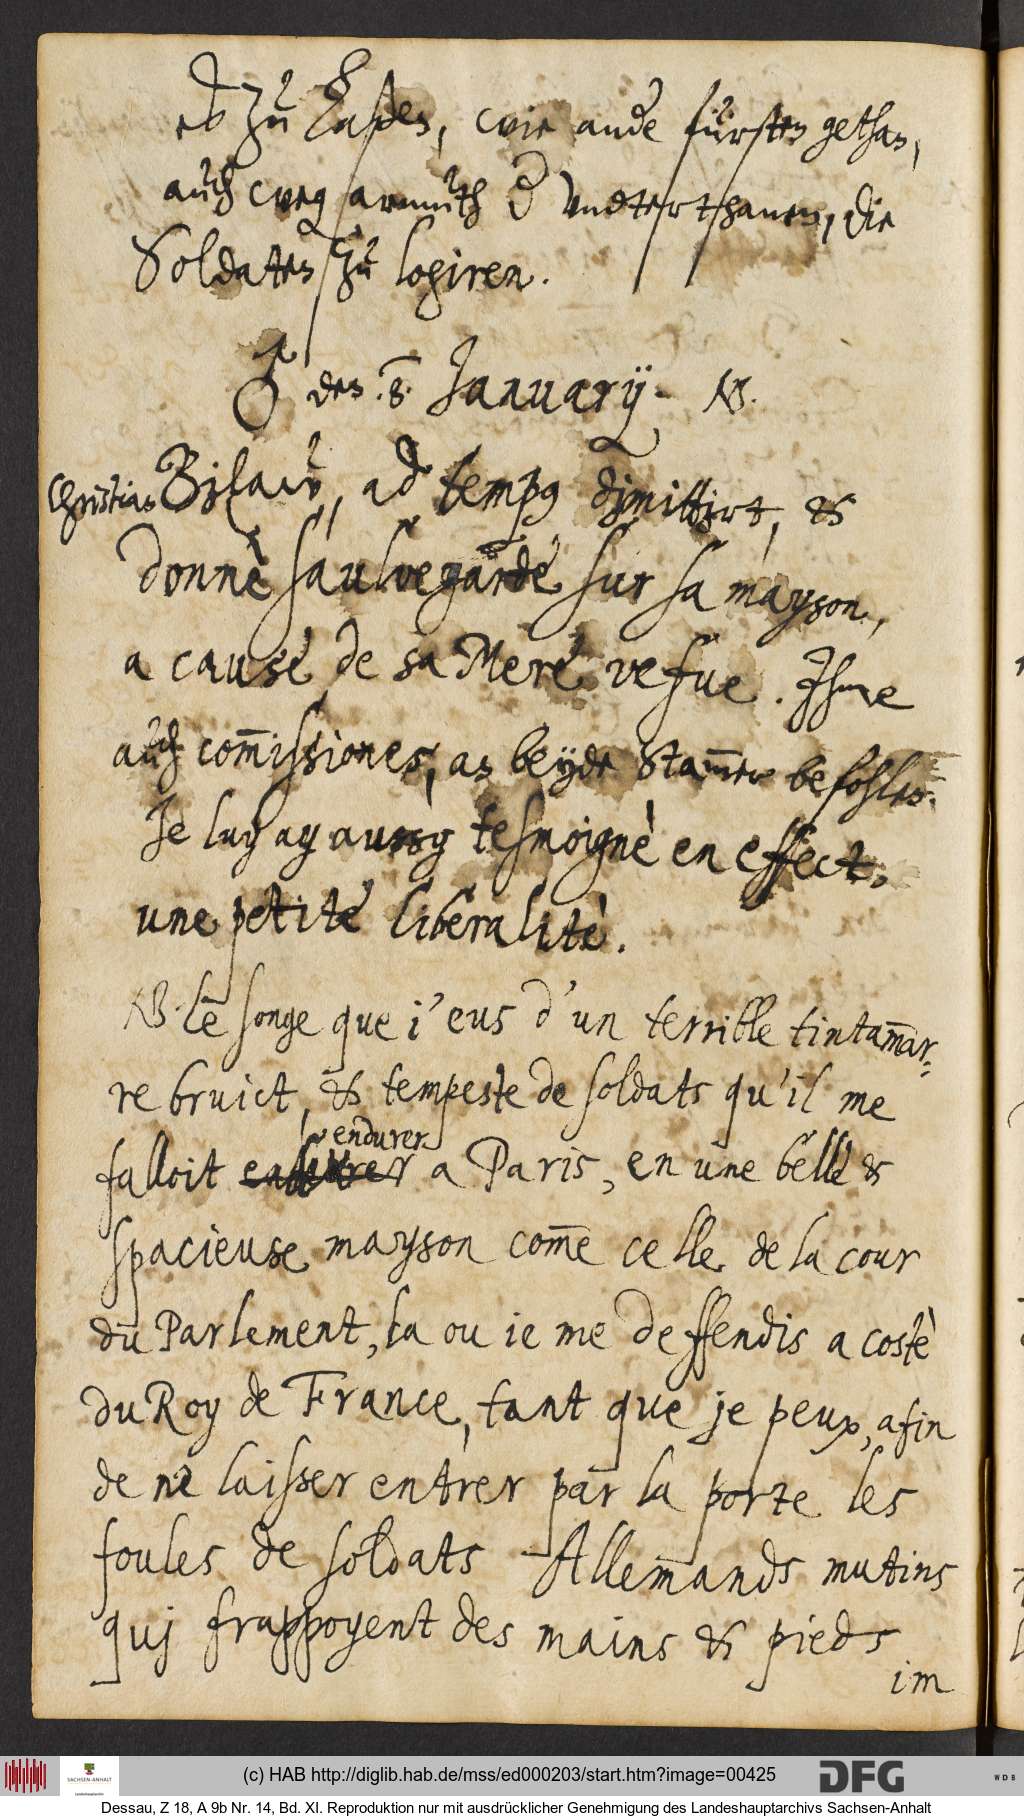 es zu laßen, wie ande fürsten gethan,
auch weg armuth d Vndterthanen, die
Soldaten zu logiren.
♂ den .8. January. NB.
Christian Bilaw, ad temp9 dimittirt, &
donnè saulvegarde sur sa mayson,
a cause de sa Mere vefue. Ihme
auch com̄issiones, an beyde Stam̄er befohlen.
Je luy ay aussy tesmoignè en effect,
une petite liberalitè.
NB. Le songe que i'eus d'un terrible tintamar=
re bruict, & tempeste de soldats qu'il me
falloit endurer a Paris, en une belle &
spacieuse mayson com̄e celle de la cour
du Parlement, la ou ie me deffendis a costè
du Roy de France, tant que je peux, afin
de ne laisser entrer par la porte les
foules de soldats Allemands mutins
quj frappoyent des mains & pieds
im
(c) HAB http://diglib.hab.de/mss/ed000203/start.htm?image=00425
SACHSEN-ANHALT
DFG
WDB
Dessau, Z 18, A 9b Nr. 14, Bd. XI. Reproduktion nur mit ausdrücklicher Genehmigung des Landeshauptarchivs Sachsen-Anhalt